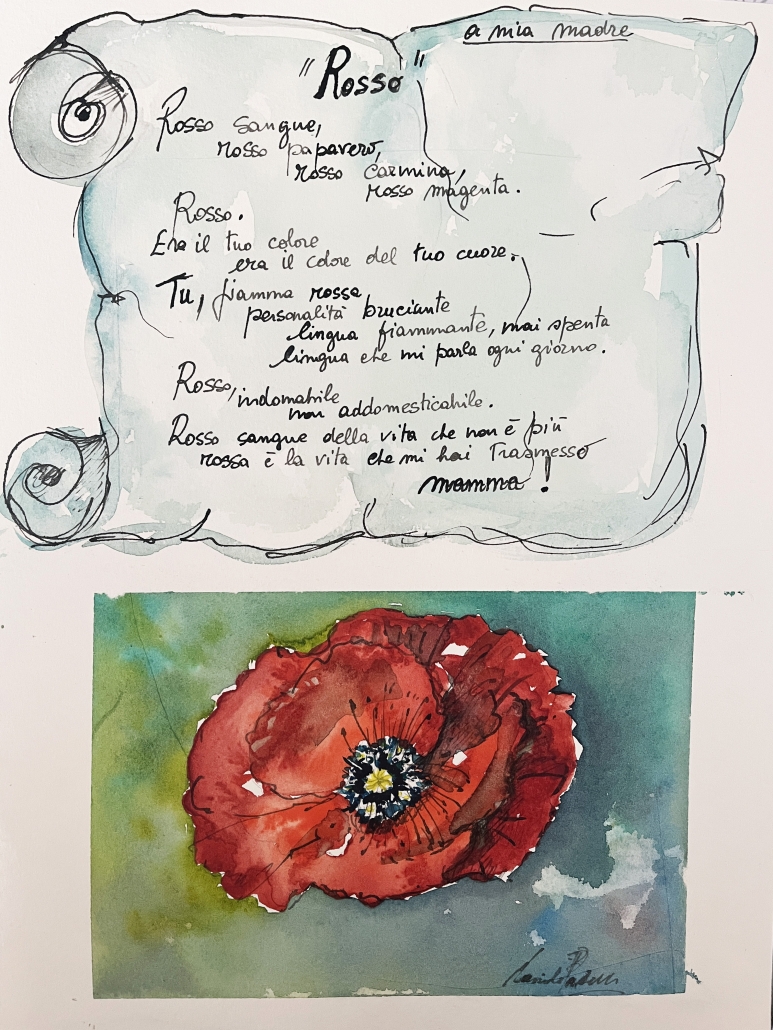 a mia madre
"Rosso"
Rosso sangue,
rosso papavero,
rosso carmino,
rosso magenta.
Rosso.
Era il tuo colore
era il colore del tuo cuore.
Tu, fiamma rossa,
personalità bruciante
lingua fiammante, mai spenta
lingua che mi parla ogni giorno.
Rosso, indomabile
non addomesticabile.
Rosso sangue della vita che non è più
rossa è la vita che mi hai Trasmesso
mamma!